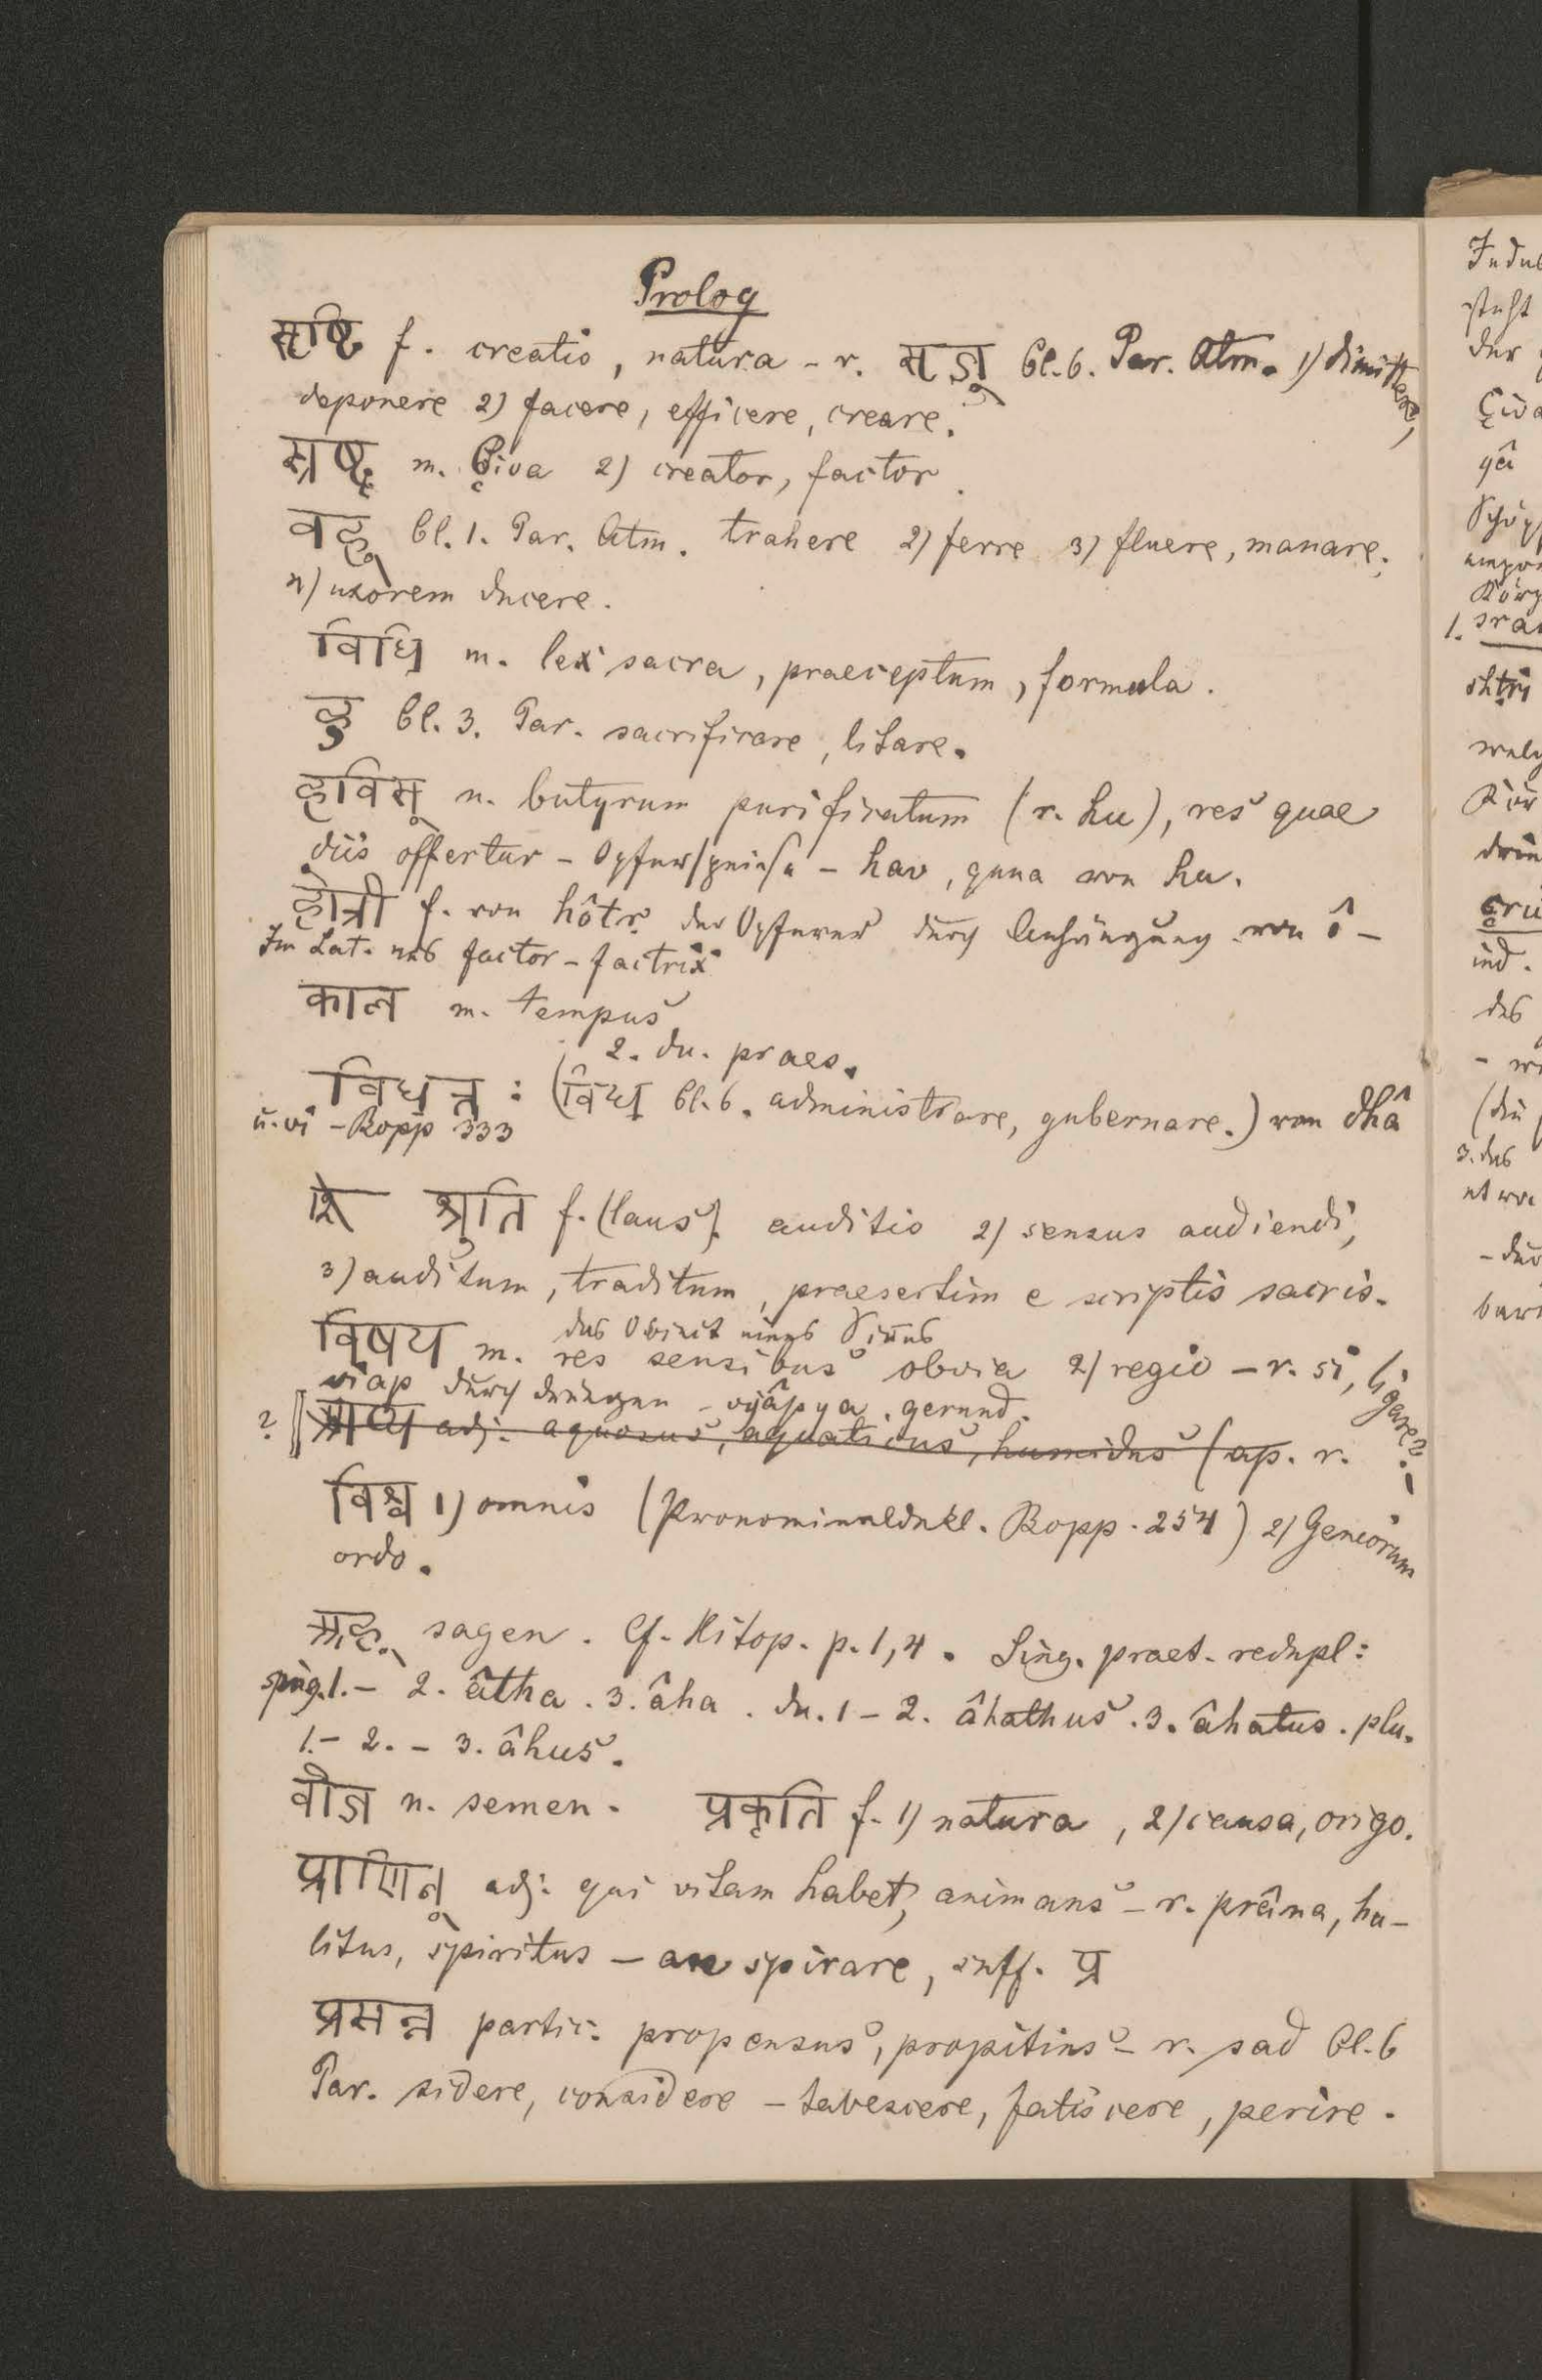 Prolog
सृष्टि f. creatio, natura - r. सृज् Cl. 6. Par. Atm. 1) dimittere,
deponere 2) facere, efficere, creare.
स्रष्टृ m. Çiva 2) creator, factor.
वह् Cl. 1. Par. Atm. trahere 2) ferre 3) fluere, manare;
4) uxorem ducere.
विधि m. lex sacra, praeceptum, formula.
हु Cl. 3. Par. sacrificare, litare.
हविस् n. butyrum purificatum (r. hu), res quae
diis offertur - Opferspeise - hav, guna von hu.
होत्री f. von hôtr der Opferer durch Anhängung von î -
Im Lat. das factor - factrix
काल m. tempus
2. du. praes.
विधत्त : (विध Cl. 6. administrare, gubernare.) von dhâ
u. vi - Bopp 333
श्रुति f. (laus). auditio 2) sensus audiendi,
3) auditum, traditum, praesertim e scriptis sacris.
das Object eines Sinnes
विषय m. res sensibus obvia 2) regio - r. si, ligare? -
viap durchdringen - vyâpya. gerund.
? adj. aquosus, aquaticus, humidus (ap. r.
विश्व 1) omnis (Pronominaldekl. Bopp. 254) 2) Geniorum
ordo.
अह् sagen. Cf. Hitop. p. 1, 4. Sing. praet. redupl:
sing. 1. - 2. âttha. 3. âha. du. 1 - 2. âhathus. 3. âhatus. plu.
1. - 2. - 3. âhus.
वीज n. semen. प्रकृति f. 1) natura, 2) causa, origo.
प्राणिन् adj. qui vitam habet, animans - r. prâna, ha-
litus, spiritus - an spirare, suff. प्र
प्रसन्न partic. propensus, propitius - r. sad Cl. 6
Par. sidere, considere - tabescere, fatiscere, perire.